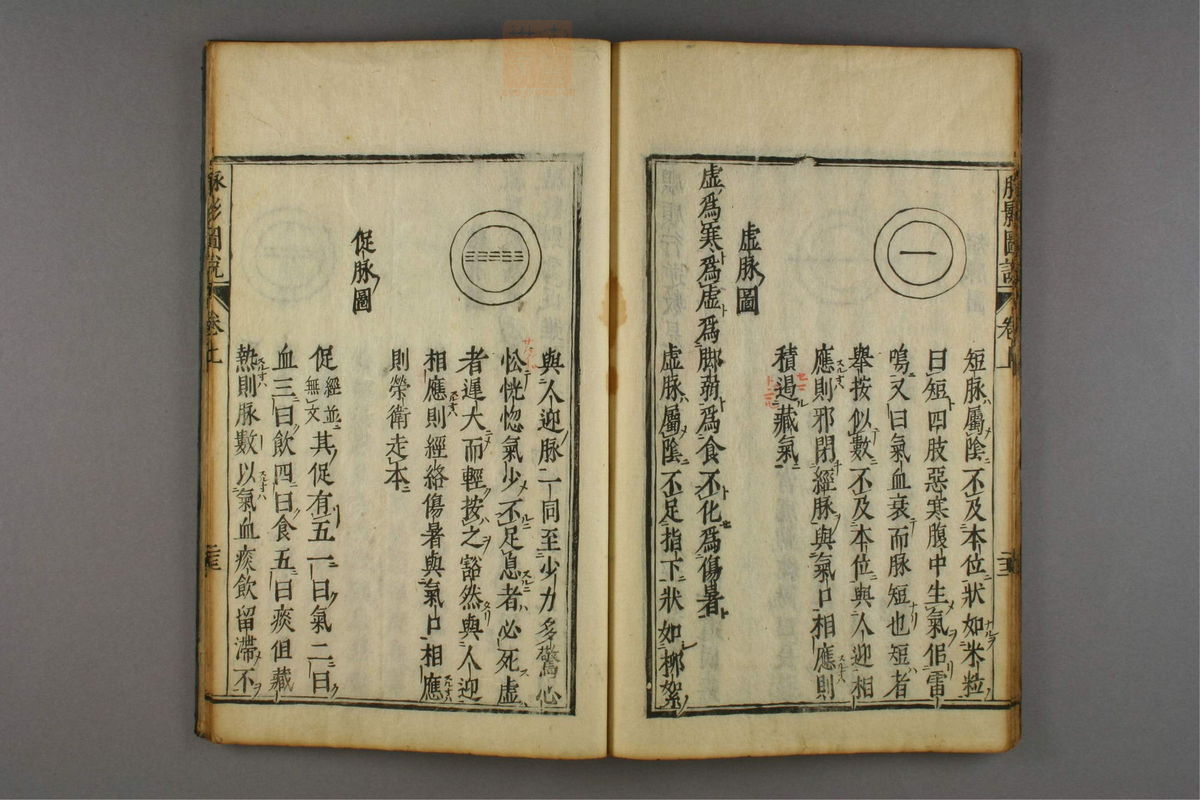 脉影圖說 卷上
短脉屬陰不及本位狀如米粒
曰短四肢惡寒腹中生氣佀雷
鳴又曰氣血衰而脉短也短者
舉按似數不及本位與人迎相
應則邪閉經脉與氣口相應則
積遏藏氣
虛脉圖
虛爲寒爲虛爲脚弱爲食不化爲傷暑
虛脉屬陰不足指下狀如柳絮
與人迎脉一同至少力多驚心
忪恍惚氣少不足息者必死虛
者遲大而輕按之豁然與人迎
相應則經絡傷暑與氣口相應
則榮衛走本
促脉圖
促經並無文其促有五一曰氣二曰
血三曰飲四曰食五曰痰但藏
熱則脉數以氣血痰飲留滯不
脉影圖說 卷上